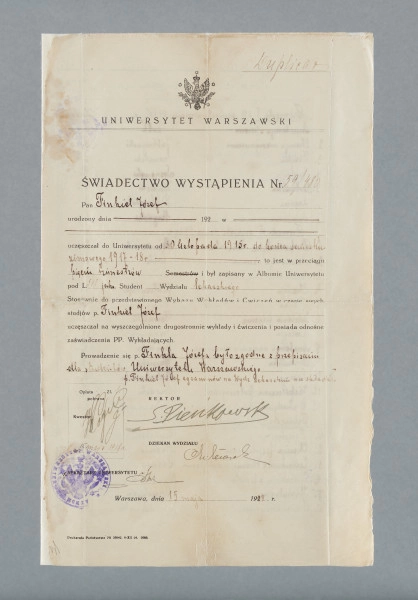 Duplicat
UNIWERSYTET WARSZAWSKI
ŚWIADECTWO WYSTĄPIENIA Nr.
Pan Finkiel Józef
urodzony dnia 192 w
uczęszczał do Uniwersytetu od listopada 1915r. do końca
zimowego 1917-18r. to jest w przeciągu
Semestrów i był zapisany w Albumie Uniwersytetu
pod L. jako Student Wydziału Lekarskiego
Stosownie do przedstawionego Wykazu Wykładów i Ćwiczeń w czasie swych
studjów p. Finkiel Józef
uczęszczał na wyszczególnione drugostronnie wykłady i ćwiczenia i posiada odnośne
zaświadczenia PP. Wykładających.
Prowadzenie się p. Finkla Józefa było zgodne z przepisami
dla studentów Uniwersytetu Warszawskiego
p. Finkiel Józef egzaminów na Wydz. Lekarskim nie
Opłatę Zł.
pobrano
REKTOR
S. Pieńkowski
Kwestor
DZIEKAN WYDZIAŁU
SEKRETARZ UNIWERSYTETU
Warszawa, dnia 15 192 r.